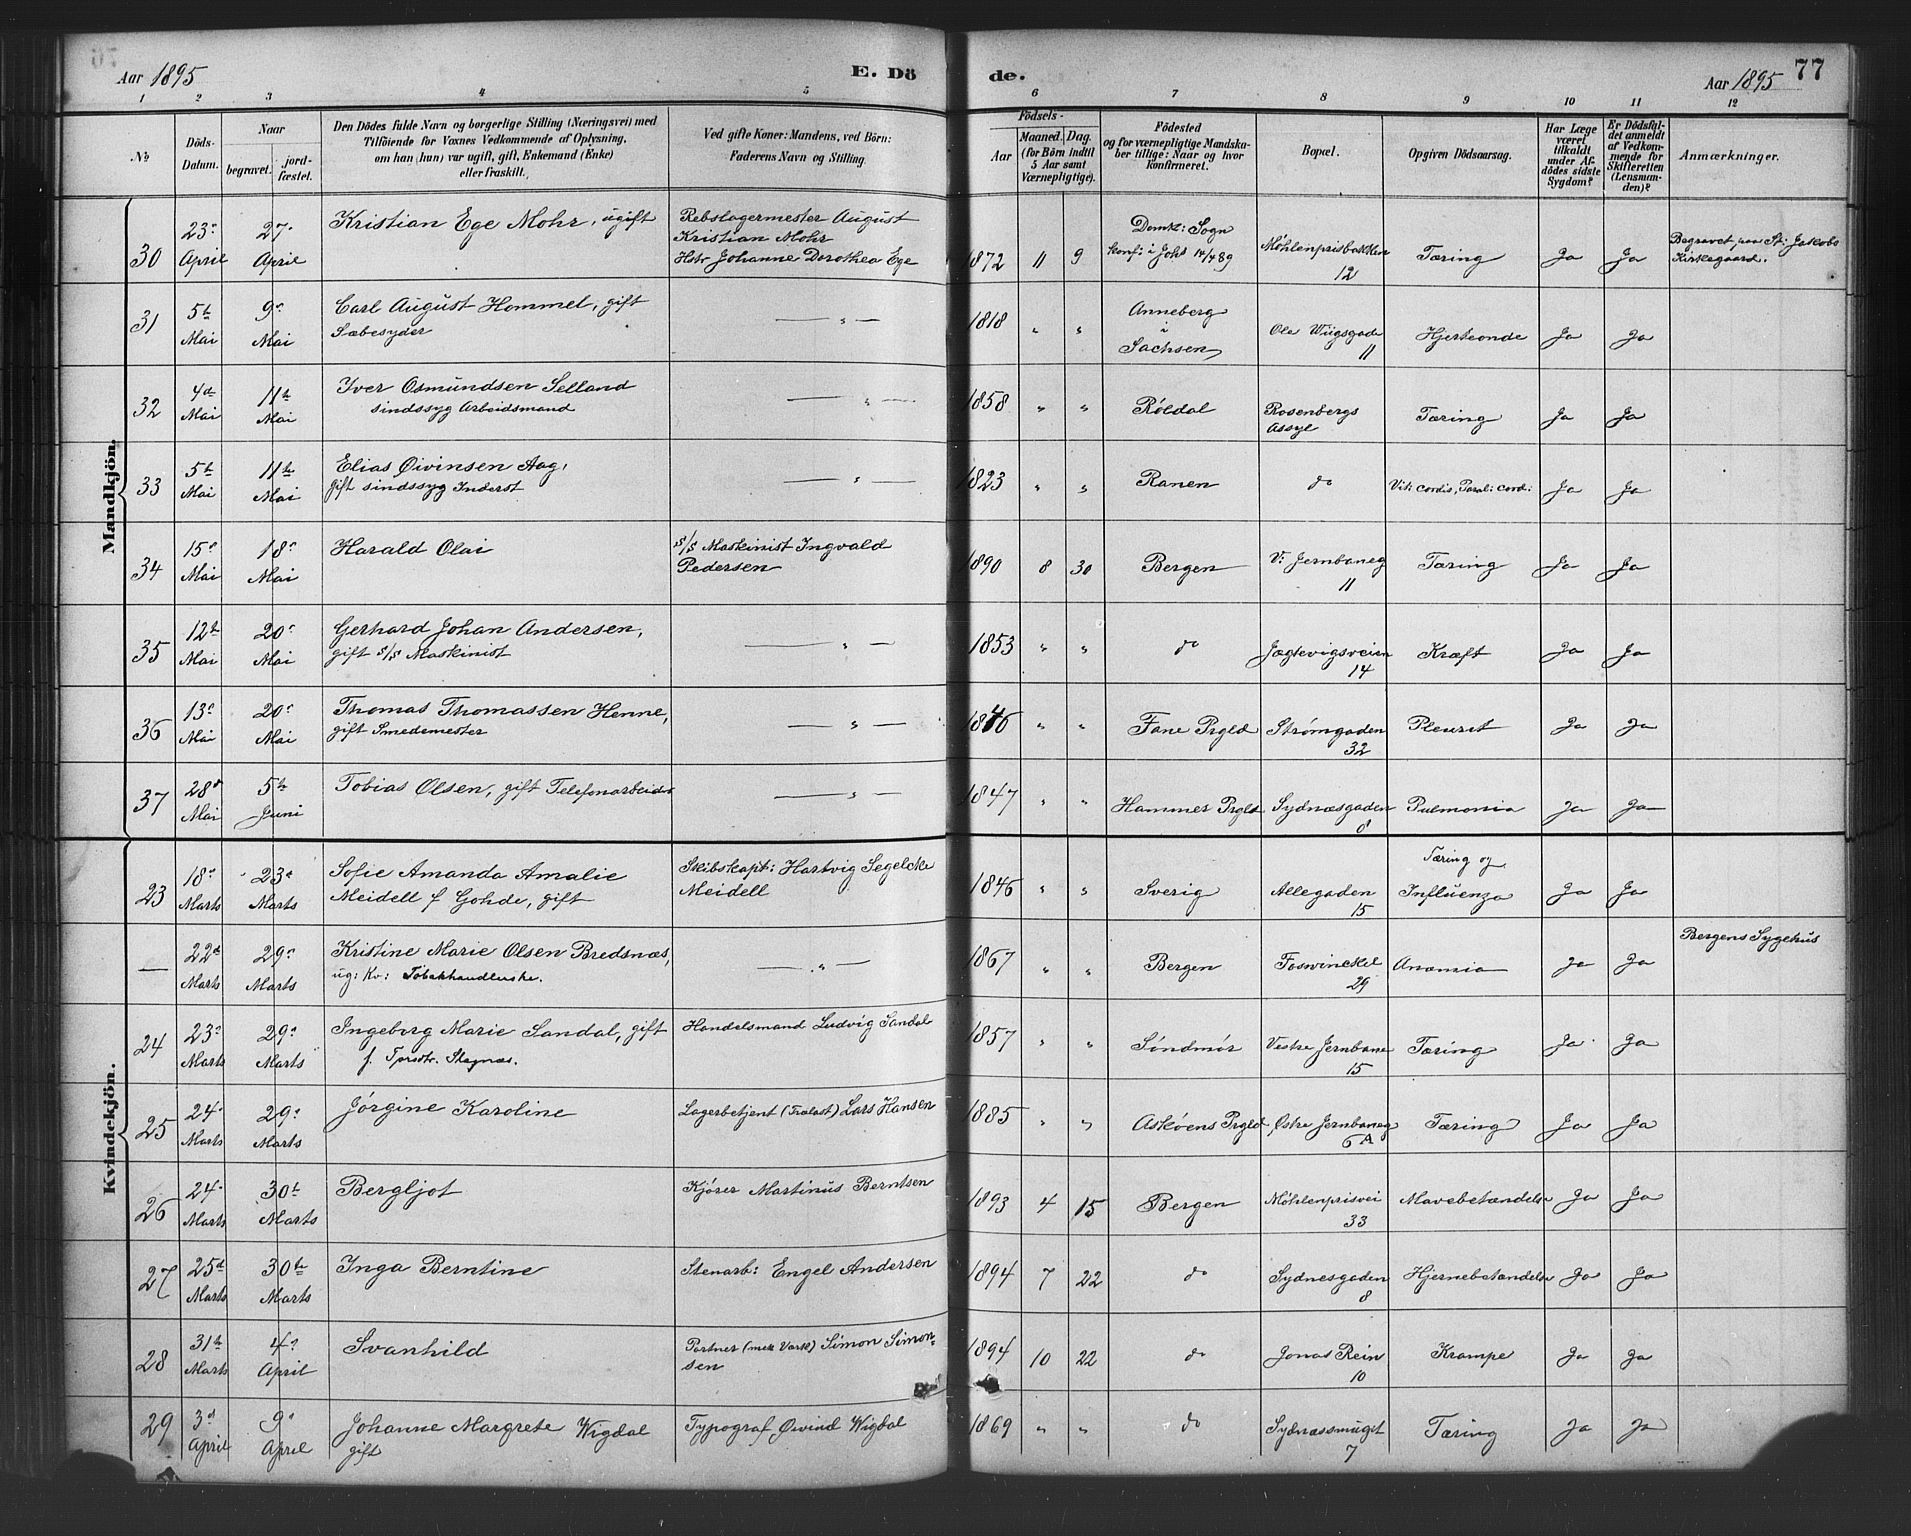 Aar 1895 E. Dö de. Aar 1895 77
1 2 3 4 5 6 7 8 9 10 11 12
№ Döds-Datum. Naar begravet. jord-fæstet. Den Dödes fulde Navn og borgerlige Stilling (Næringsvei) med Tilföiende for Voxnes Vedkommende af Oplysning, om han (hun) var ugift, gift, Enkemand (Enke) eller fraskilt. Ved gifte Koner: Mandens, ved Börn: Faderens Navn og Stilling. Födsels- Aar Maaned. Dag. (for Börn indtil 5 Aar samt Værnepligtige). Födested og for værnepligtige Mandskaber tillige: Naar og hvor konfirmeret. Bopæl. Opgiven Dödsaarsag. Har Læge været tilkaldt under Afdödes sidste Sygdom? Er Dödsfaldet anmeldt af Vedkommende for Skifteretten (Lensmanden)? Anmærkninger.
Mandkjön.
30 23de April 27. April Kristian Ege Mohr, ugift Rebslagermester August Kristian Mohr Hstr Johanne Dorothea Ege 1872 11 9 Domk: Sogn konf: i Johs 14/4 89 Møhlenprisbakken 12 Tæring Ja Ja Begravet paa St: Jakobs Kirkegaard.
31 5te Mai 9de Mai Carl August Hommel, gift Sæbesyder — " — 1818 " " Anneberg i Sachsen Ole Wiigsgade 11 Hjerteonde Ja Ja
32 4de Mai 11te Mai Iver Osmundsen Selland sindssyg Arbeidsmand — " — 1858 " " Røldal Rosenbergs Assyl Tæring Ja Ja
33 5te Mai 11te Mai Elias Øivinsen Aag, gift sindssyg Inderst — " — 1823 " " Ranen do Vit: cordis, Paral: cord: Ja Ja
34 15de Mai 18de Mai Harald Olai S/S Maskinist Ingvald Pedersen 1890 8 30 Bergen V: Jernbaneg 11 Tæring Ja Ja
35 12te Mai 20de Mai Gerhard Johan Andersen, gift S/S Maskinist — " — 1853 " " do Jægtevigsveien 14 Kræft Ja Ja
36 13de Mai 20de Mai Thomas Thomassen Henne, gift Smedemester — " — 1846 " " Fane Prgld Strømgaden 32 Pleurit Ja Ja
37 28de Mai 5te Juni Tobias Olsen, gift Telefonarbeider — " — 1847 " " Hammer Prgld Sydnæsgaden 8 Pulmonia Ja Ja
Kvindekjön.
23 18de Marts 23de Marts Sofie Amanda Amalie Meidell f Gohde, gift Skibskapt: Hartvig Segelcke Meidell 1846 " " Sverig Allegaden 15 Tæring og Influenza Ja Ja
— 22de Marts 29de Marts Kristine Marie Olsen Bredsnæs, ug: Kv: Tobakhandlerske. — " — 1867 " " Bergen Fosvinckel 29 Anæmia Ja Ja Bergens Sygehus
24 23de Marts 29de Marts Ingeborg Marie Sandal, gift f. Handelsmand Ludvig Sandal 1857 " " Søndmør Vestre Jernbane 15 Tæring Ja Ja
25 24. Marts 29de Marts Jørgine Karoline Lagerbetjent (Trælast) Lars Hansen 1885 " " Askøens Prgld Østre Jernbaneg 6A Tæring Ja Ja
26 24. Marts 30te Marts Bergljot Kjører Martinus Berntsen 1893 4 15 Bergen Møhlenprisvei 33 Mavebetændelse Ja Ja
27 25de Marts 30te Marts Inga Berntine Stenarb: Engel Andersen 1894 7 22 do Sydnesgaden 8 Hjernebetændelse Ja Ja
28 31te Marts 4de April Svanhild Portner (mek Værk) Simon Simonsen 1894 10 22 do Jonas Rein 10 Krampe Ja Ja
29 3de April 9de April Johanne Margrete Wigdal gift Typograf Øivind Wigdal 1869 " " do Sydnæssmuget 7 Tæring Ja Ja